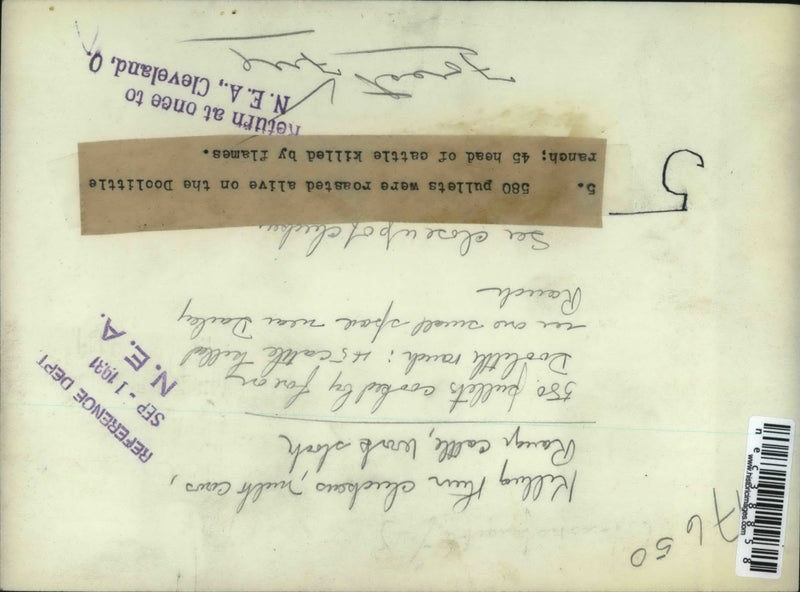 7650
Killing their chickens, milk cows,
Range cattle, work stock
580 pullets cooked by fire on
Doolittle ranch; 45 cattle killed
in one small space near Dailey
Ranch
See close up of chicken
5
5. 580 pullets were roasted alive on the Doolittle
ranch; 45 head of cattle killed by flames.
Return at once to
N. E. A., Cleveland, O.
Forest Fire
REFERENCE DEPT
SEP - 1 1931
N. E. A.
www.historicimages.com
nec38858